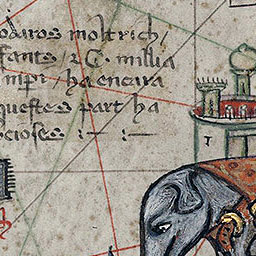 odaros molt rich /
fants / ⁊ C. millia
mpi / ha encara
questes part ha
cioses : — : —